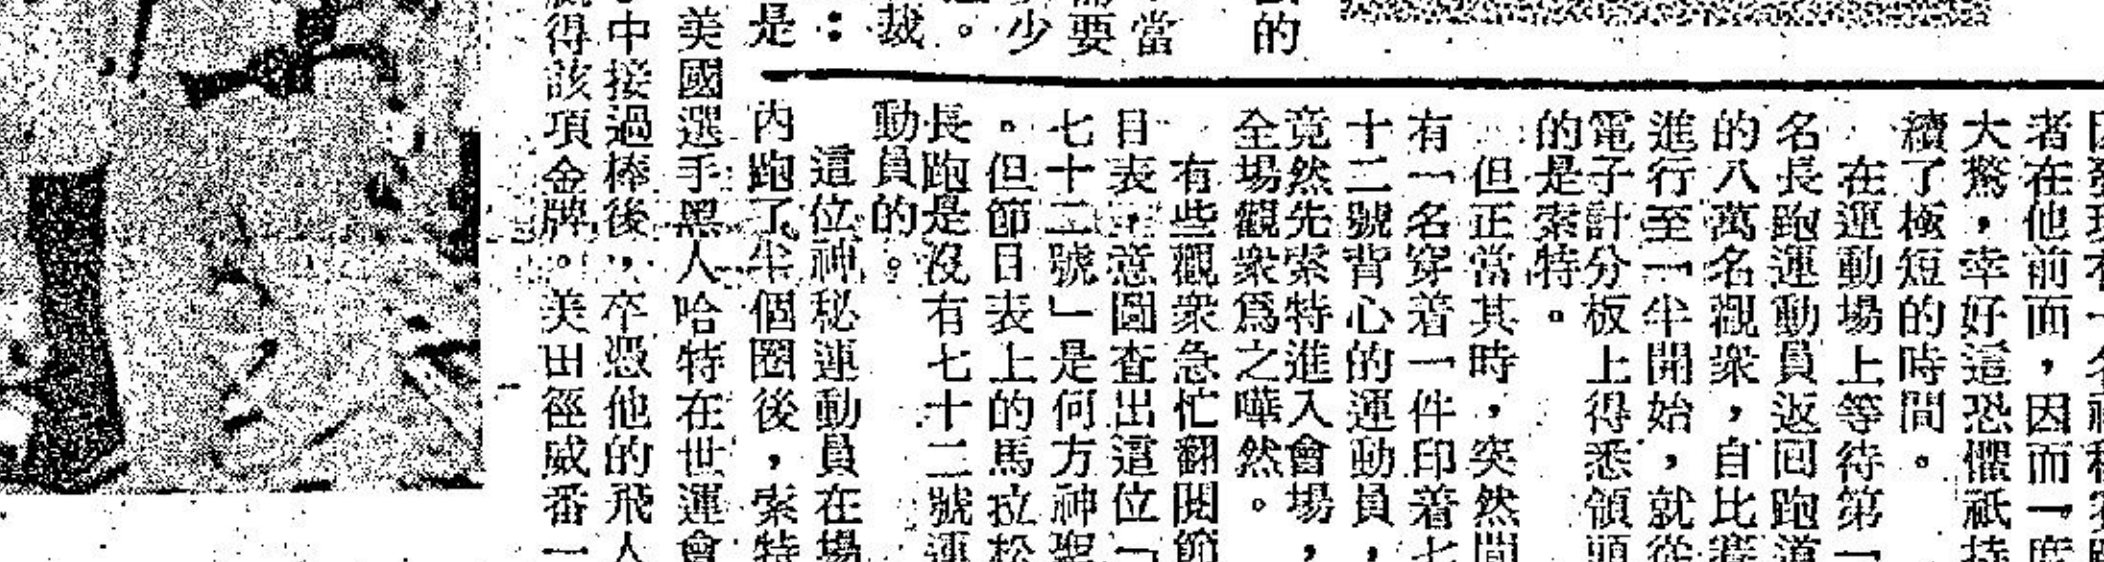 的
當
要
少
。
裁
：
是
者在他前面，因而一度
大驚，幸好這恐懼祇持
續了極短的時間。
在運動場上等待第一
名長跑運動員返回跑道
的八萬名觀衆，自比賽
進行至一半開始，就從
電子計分板上得悉領頭
的是索特。
但正當其時，突然間
有一名穿着一件印着七
十二號背心的運動員，
竟然先索特進入會場，
全場觀衆爲之嘩然。
有些觀衆急忙翻閱節
目表，意圖查出這位「
七十二號」是何方神聖
。但節目表上的馬拉松
長跑是沒有七十二號運
動員的。
這位神秘運動員在場
內跑了半個圈後，索特
美國選手黑人哈特在世運會
中接過棒後，卒憑他的飛人
得該項金牌。美田徑威番一